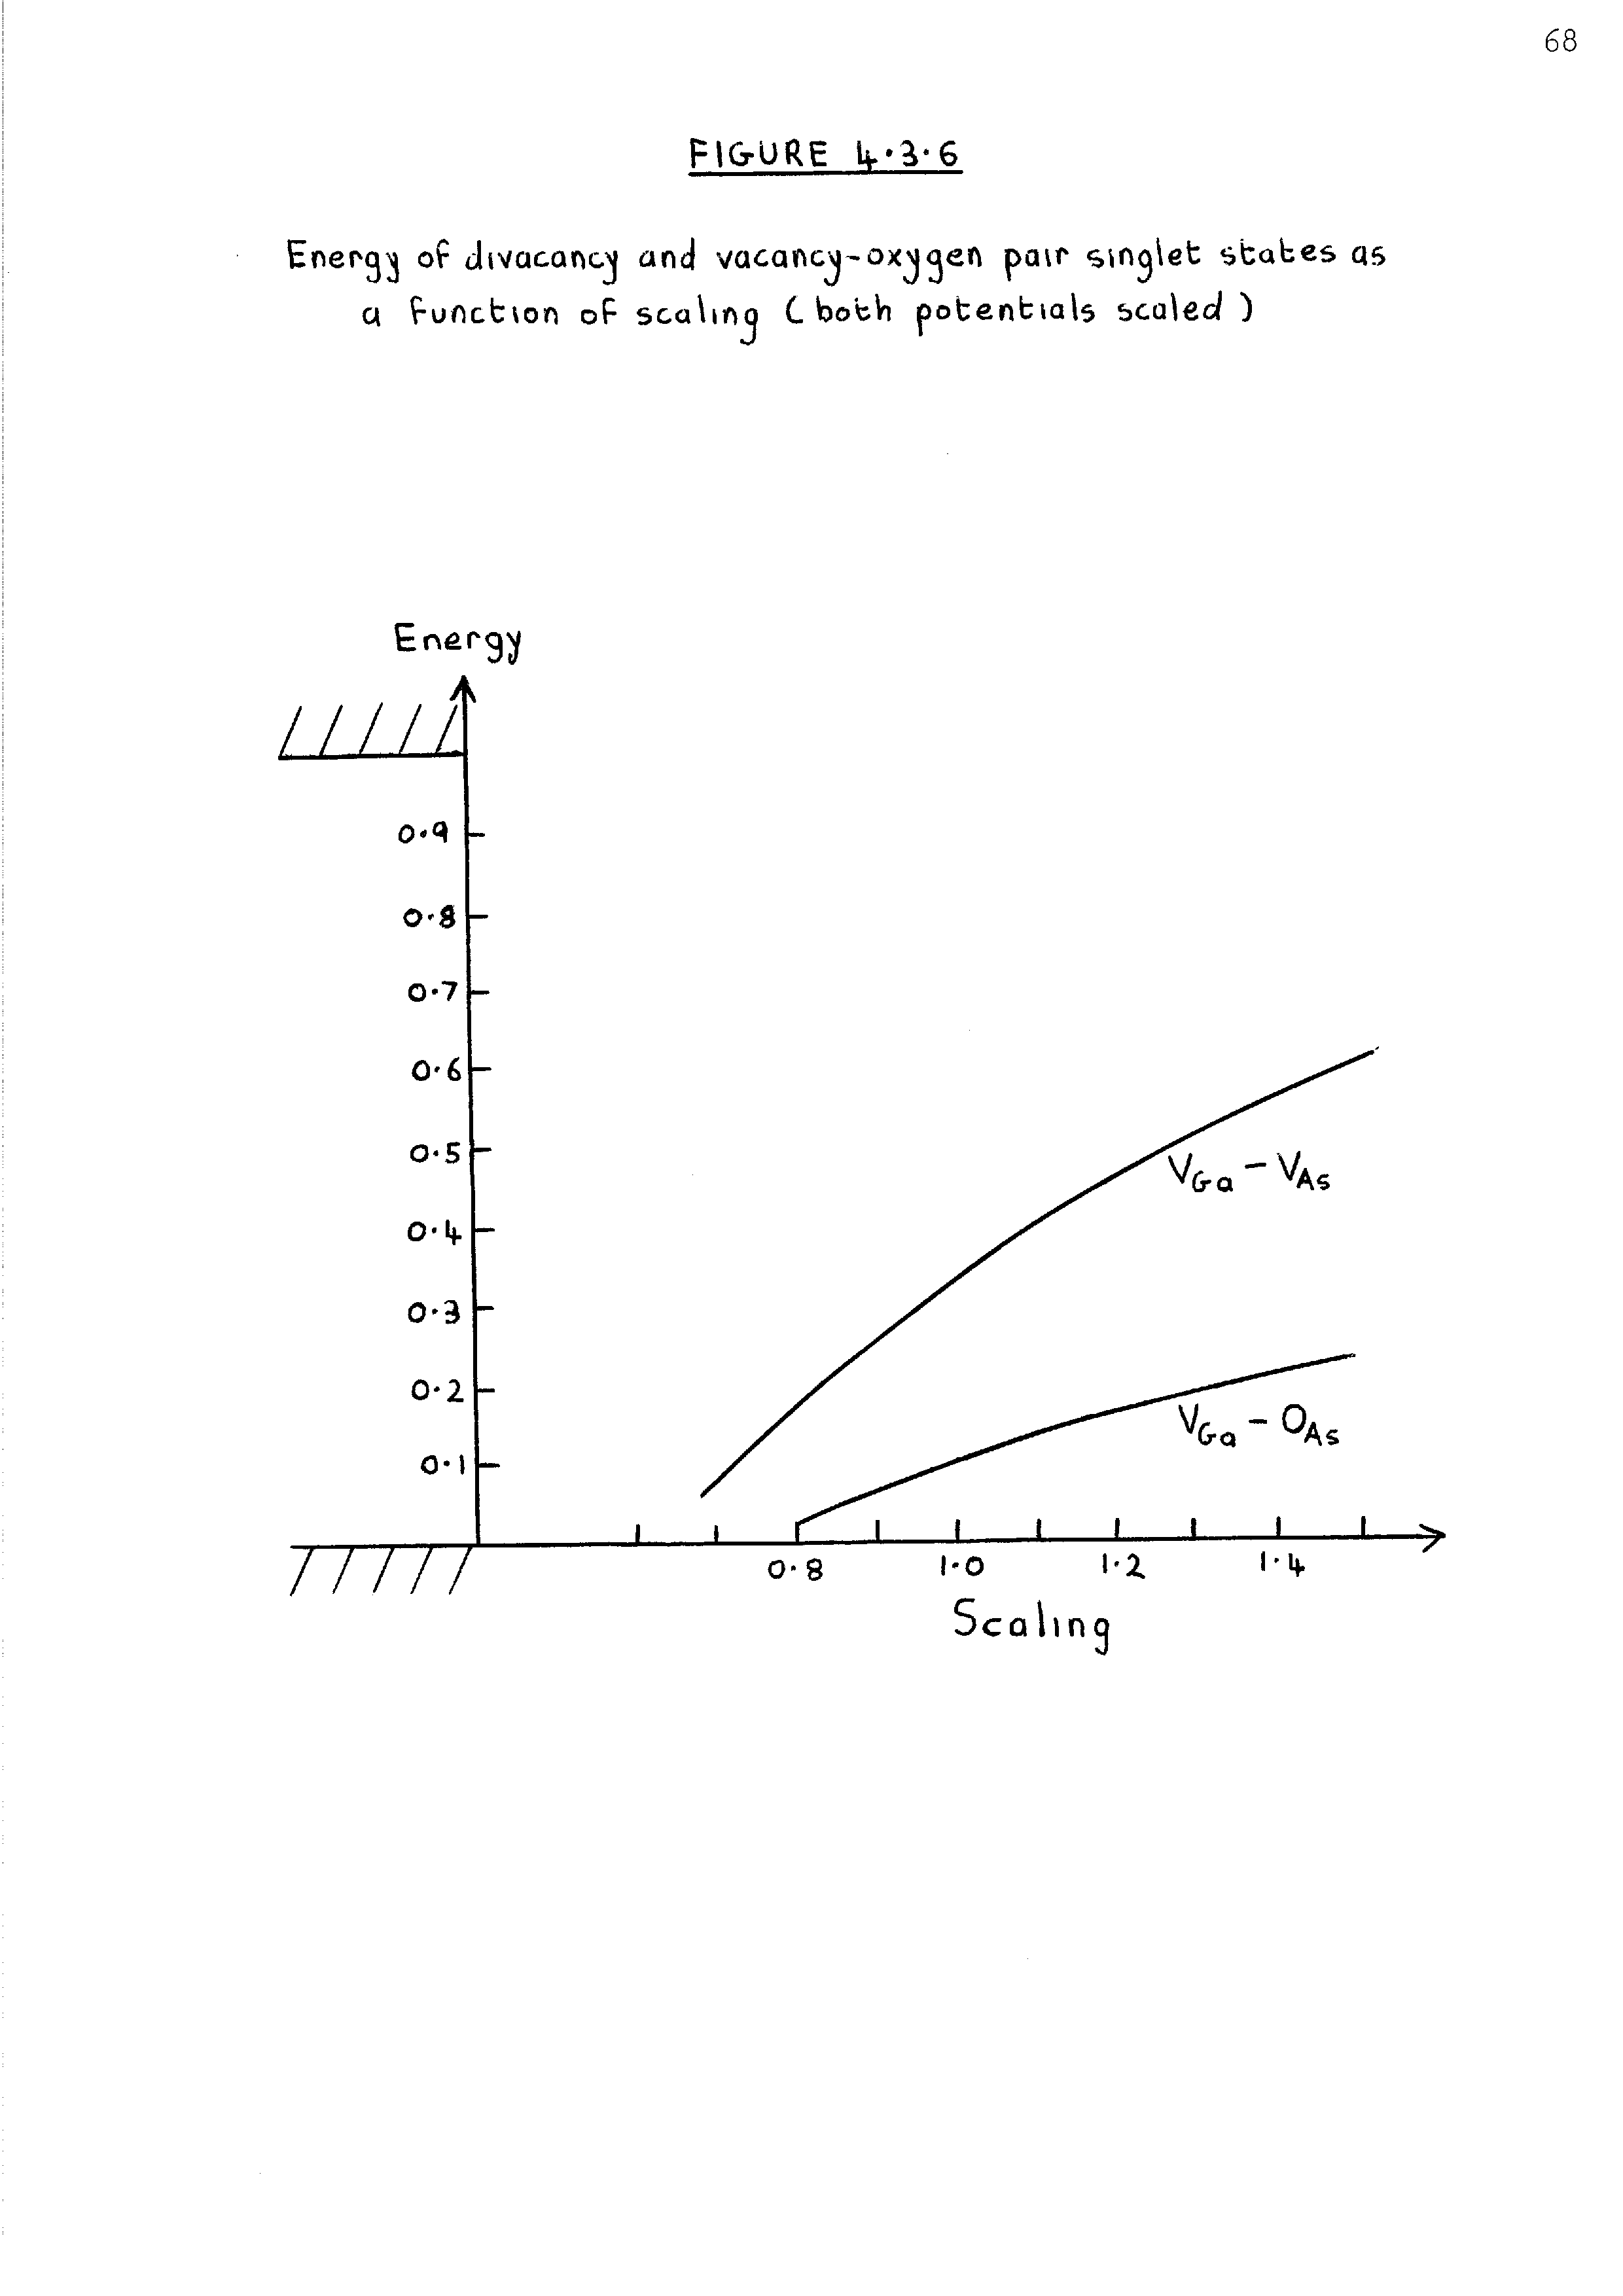 68
FIGURE 4.3.6
Energy of divacancy and vacancy-oxygen pair singlet states as
a function of scaling (both potentials scaled)
Energy
0.9
0.8
0.7
0.6
0.5
0.4
0.3
0.2
0.1
V_Ga - V_As
V_Ga - O_As
0.8 1.0 1.2 1.4
Scaling